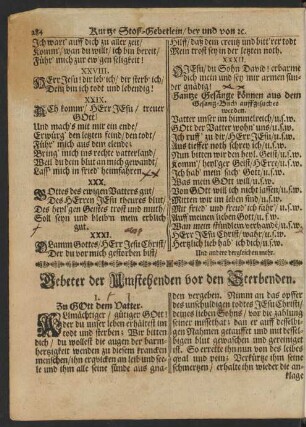 284 Kurtze Stoß-Gebetlein/ bey und von ꝛc.
Ich wart auff dich zu aller zeit/
Komm/ wan du wilt/ ich bin bereit/
Führ' mich zur ewgen seligkeit!
XXVIII.
HErr Jesu! dir leb' ich/ dir sterb' ich/
Dein bin ich todt und lebendig!
XXIX.
Ach komm/ HErr JEsu/ treuer
GOtt!
Und mach's mit mir ein ende/
Führ' mich aus dem elende:
Bring' mich ins rechte vatterland/
Weil du dein blut an mich gewandt/
Laß' mich in fried' heimfahren.
XXX.
GOttes des ewigen Vatters gut/
Des HErren JEsu theures blut/
Des heyl'gen Geistes trost und muth/
Soll seyn und bleiben mein erblich
gut.
XXXI.
O Lamm Gottes/ HErr Jesu Christ/
Der du vor mich gestorben bist/
Hilff/ daß dem creutz und bitt'rer todt
Mein trost sey in der letzten noth.
XXXII.
O JEsu/ du Sohn David/ erbarme
dich mein und sey mir armen sün-
der gnädig!
Gantze Gesänge können aus dem
Gesang-Buch auffgesucht
werden.
Vatter unser im himmelreich/ u.s.w.
GOtt der Vatter wohn' uns/ u.s.w.
Ich ruff' zu dir/ HErr JEsu/ u.s.w.
Aus tieffer noth schrey ich/ u.s.w.
Nun bitten wir den heyl. Geist/ u.s.w.
Komm/ heyl'ger Geist/ HErre/ u.s.w.
Ich hab' mein sach Gott/ u.s.w.
Was mein GOtt will/ u.s.w.
Von GOtt will ich nicht lassen/ u.s.w.
Mitten wir im leben sind/ u.s.w.
Mit fried' und freud' ich fahr'/ u.s.w.
Auff meinen lieben Gott/ u.s.w.
Wan mein stündlein verhanden/ u.s.w.
HErr JEsu Christ/ u.s.w.
Hertzlich lieb hab' ich dich/ u.s.w.
Und andere dergleichen mehr.
Gebeter der Umstehenden vor den Sterbenden.
1.
Zu GOtt dem Vatter.
Allmächtiger/ gütiger GOtt!
der du unser leben erhältest im
todt und sterben: Wir bitten
dich/ du wollest die augen der barm-
hertzigkeit wenden zu diesem krancken
menschen/ ihn erquicken an leib und see-
le und ihm alle seine sünde aus gna-
den vergeben. Nimm an das opffer
des unschuldigen todes JEsu Christi/
deines lieben Sohns/ vor die zahlung
seiner missethat: dan er ist auff desselbi-
gen Nahmen getauffet und mit dessel-
bigen blut gewaschen und gereiniget
ist. So errette ihn nun von des leibes
qual und pein: Verkürtze ihm seine
schmertzen/ erhalte ihn wieder die an-
klage